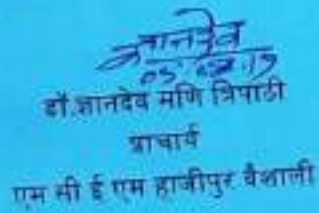 ज्ञानदेव
डॉ.ज्ञानदेव मणि त्रिपाठी
प्राचार्य
एम सी ई एम हाजीपुर वैशाली